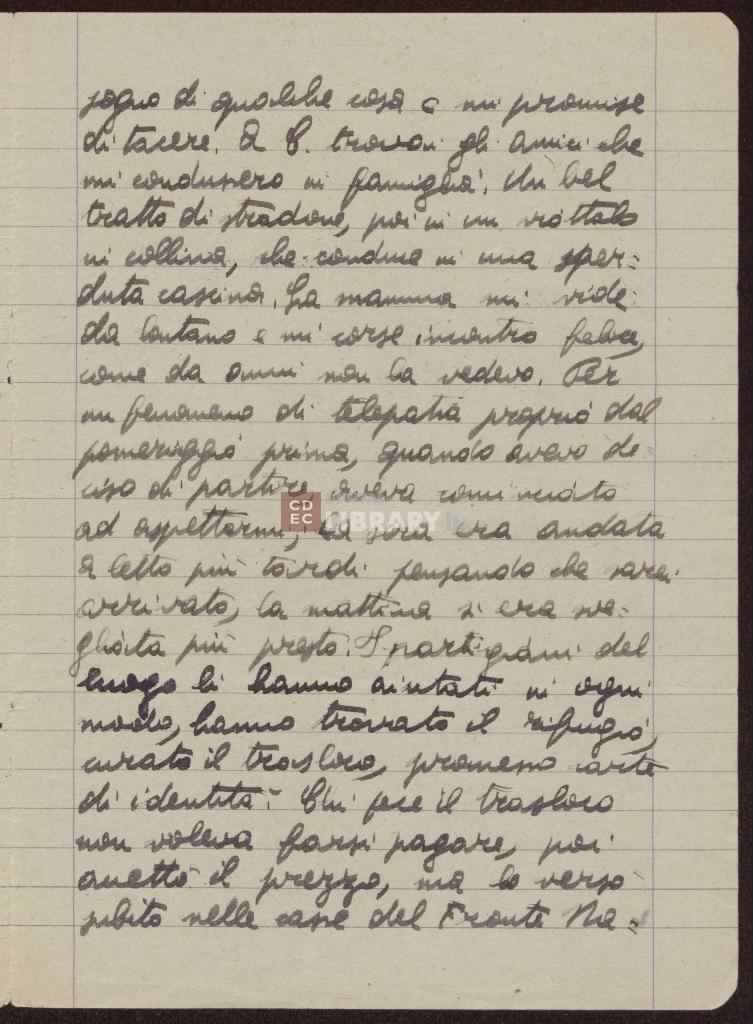 sogno di qualche cosa e mi promise
di tacere. A C. trovai gli amici che
mi condussero in famiglia. Un bel
tratto di stradone, poi in un viottolo
in collina, che conduce in una sper=
duta cascina. La mamma mi vide
da lontano e mi corse incontro felice,
come da anni non la vedevo. Per
un fenomeno di telepatia proprio dal
pomeriggio prima, quando avevo de
ciso di partire, aveva cominciato
ad aspettarmi, la sera era andata
a letto più tardi pensando che sarei
arrivato, la mattina si era sve=
gliata più presto. I partigiani del
luogo li hanno aiutati in ogni
modo, hanno trovato il rifugio,
curato il trasloco, promesso carte
di identità. Chi fece il trasloco
non voleva farsi pagare, poi
accettò il prezzo, ma lo versò
subito nelle casse del Fronte Na=
CDEC LIBRARY